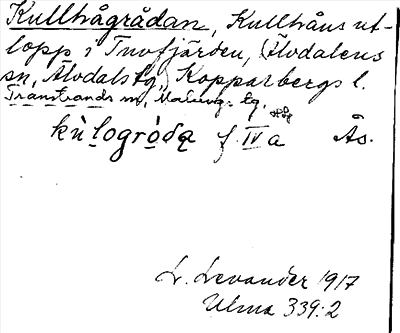 Kullhågrådan, Kullhåns ut-
lopp i Tvofjärden, (Älvdalens
sn, Älvdals tg), Kopparbergs l.
Transtrands sn, Malungs tg.
kùlogròdą f. IV a Ås.
L. Levander 1917
Ulma 339:2